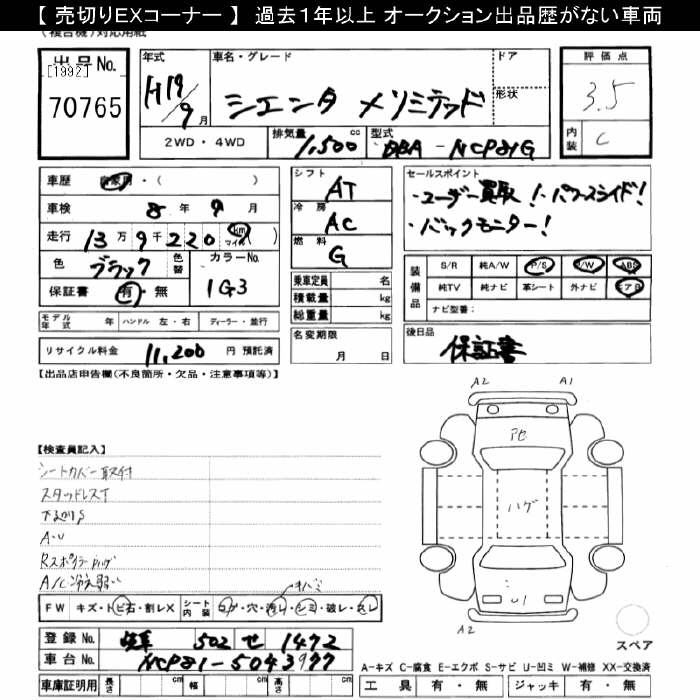 【 売切りEXコーナー 】 過去1年以上 オークション出品歴がない車両
(複合機)対応用紙
出品No.
[1992]
70765
年式
H19/9月
車名・グレード
シエンタ Xリミテッド
ドア
形状
評価点
3.5
内装
C
2WD・4WD
排気量
1,500 cc
型式
DBA-NCP81G
車歴
自家用・( )
車検 8年 9月
走行 13万 9千 220 (km マイル)
色 ブラック
色替
カラーNo.
1G3
保証書 有・無
シフト AT
冷房 AC
燃料 G
乗車定員 名
積載量 kg
総重量 kg
セールスポイント
・ユーザー買取!・パワースライド!
・バックモニター!
装備品
S/R 純A/W P/S P/W ABS
純TV 純ナビ 革シート 外ナビ エアB
ナビ型番:
モデル年式 年 ハンドル 左・右 ディーラー・並行
名変期限 月 日
後日品
保証書
リサイクル料金 11,200 円 預託済
【出品店申告欄(不良箇所・欠品・注意事項等)】
A2 A1
アセ
ハゲ
U1
A2
【検査員記入】
シートカバー取付
スタッドレスT
下廻りS
A-U
Rスポイラー
A/C冷え弱い
FW キズ・トビ石・割レX シート内装 コゲ・穴・汚レ・シミ・破レ・スレ
登録No. 岐阜 502 せ 1472
車台No. NCP81-5043977
車庫証明用 長さ cm 幅 cm 高さ cm
スペア
A-キズ C-腐食 E-エクボ S-サビ U-凹ミ W-補修 XX-交換済
工具 有・無 ジャッキ 有・無